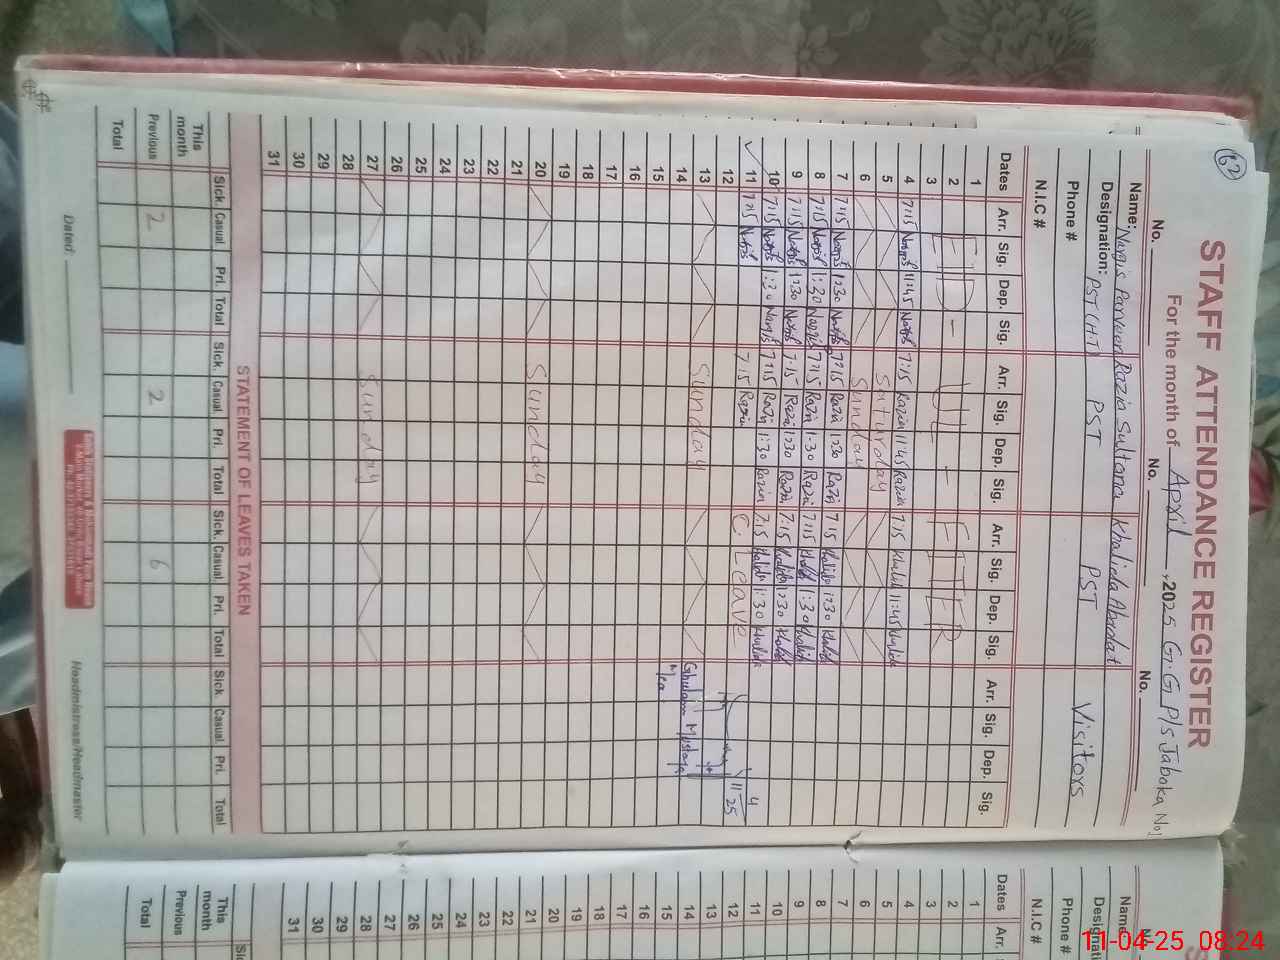 62
STAFF ATTENDANCE REGISTER
For the month of April, 2025 G.G P/S Jaboka No1
No. No. No.
Name: Nargis Parveen Razia Sultana Khalida Abadat
Designation: PST (H.T) PST PST Visitors
Phone #
N.I.C #
Dates Arr. Sig. Dep. Sig. Arr. Sig. Dep. Sig. Arr. Sig. Dep. Sig. Arr. Sig. Dep. Sig.
1
2 EID - UL - FITER
3
4 7:15 Nargis 11:45 Nargis 7:15 Razia 11:45 Razia 7:15 Khalida 11:45 Khalida
5 Saturday
6 Sunday
7 7:15 Nargis 1:30 Nargis 7:15 Razia 1:30 Razia 7:15 Khalida 1:30 Khalida
8 7:15 Nargis 1:30 Nargis 7:15 Razia 1:30 Razia 7:15 Khalida 1:30 Khalida
9 7:15 Nargis 1:30 Nargis 7:15 Razia 1:30 Razia 7:15 Khalida 1:30 Khalida
10 7:15 Nargis 1:30 Nargis 7:15 Razia 1:30 Razia 7:15 Khalida 1:30 Khalida
11 7:15 Nargis 7:15 Razia C. Leave 11/4 25
12
13 Sunday
14 Ghulam Mustafa
15 Mea
16
17
18
19
20 Sunday
21
22
23
24
25
26
27 Sunday
28
29
30
31
STATEMENT OF LEAVES TAKEN
Sick. Casual. Pri. Total Sick. Casual. Pri. Total Sick. Casual. Pri. Total Sick. Casual. Pri. Total
This month
Previous 2 2 6
Total
Dated: Headmistress/Headmaster
Dates Arr.
Name
Designation
Phone #
N.I.C #
1
2
3
4
5
6
7
8
9
10
11
12
13
14
15
16
17
18
19
20
21
22
23
24
25
26
27
28
29
30
31
This month
Previous
Total
11-04-25 08:24